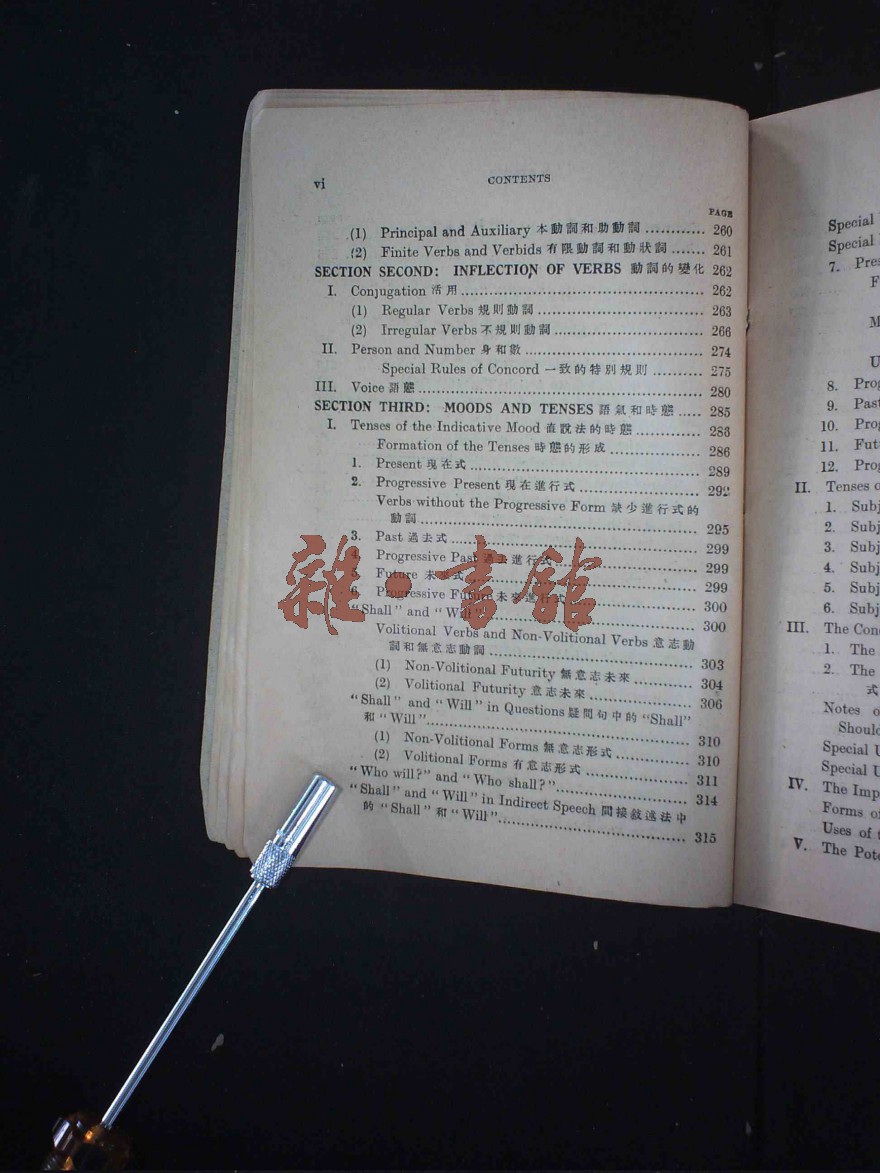 vi CONTENTS
PAGE
(1) Principal and Auxiliary 本動詞和助動詞 ............ 260
(2) Finite Verbs and Verbids 有限動詞和動狀詞 ....... 261
SECTION SECOND: INFLECTION OF VERBS 動詞的變化 262
I. Conjugation 活用 ................ 262
(1) Regular Verbs 規則動詞 ................ 263
(2) Irregular Verbs 不規則動詞 ................ 266
II. Person and Number 身和數 ................ 274
Special Rules of Concord 一致的特別規則 ........... 275
III. Voice 語態 ................ 280
SECTION THIRD: MOODS AND TENSES 語氣和時態 ..... 285
I. Tenses of the Indicative Mood 直說法的時態 ............. 286
Formation of the Tenses 時態的形成 .................. 286
1. Present 現在式 ................ 289
2. Progressive Present 現在進行式 ................ 292
Verbs without the Progressive Form 缺少進行式的
動詞 ................ 295
3. Past 過去式 ................ 299
4. Progressive Past 過去進行式 ................ 299
5. Future 未來式 ................ 299
6. Progressive Future 未來進行式 ................ 300
"Shall" and "Will" ................ 300
Volitional Verbs and Non-Volitional Verbs 意志動
詞和無意志動詞 ................ 303
(1) Non-Volitional Futurity 無意志未來 ............ 304
(2) Volitional Futurity 意志未來 ................ 306
"Shall" and "Will" in Questions 疑問句中的 "Shall"
和 "Will" ................ 310
(1) Non-Volitional Forms 無意志形式 ............ 310
(2) Volitional Forms 有意志形式 ................ 311
"Who will?" and "Who shall?" ................ 314
"Shall" and "Will" in Indirect Speech 間接敘述法中
的 "Shall" 和 "Will" ................ 315
雜·書館
Special
Special
7.
8. Prog
9. Past
10. Prog
11. Fut
12. Prog
II. Tenses
1. Subj
2. Subj
3. Subj
4. Subj
5. Subj
6. Subj
III. The
1. The
2. The
式
Notes
Should
Special
Special
IV. The
Forms
Uses of
V. The